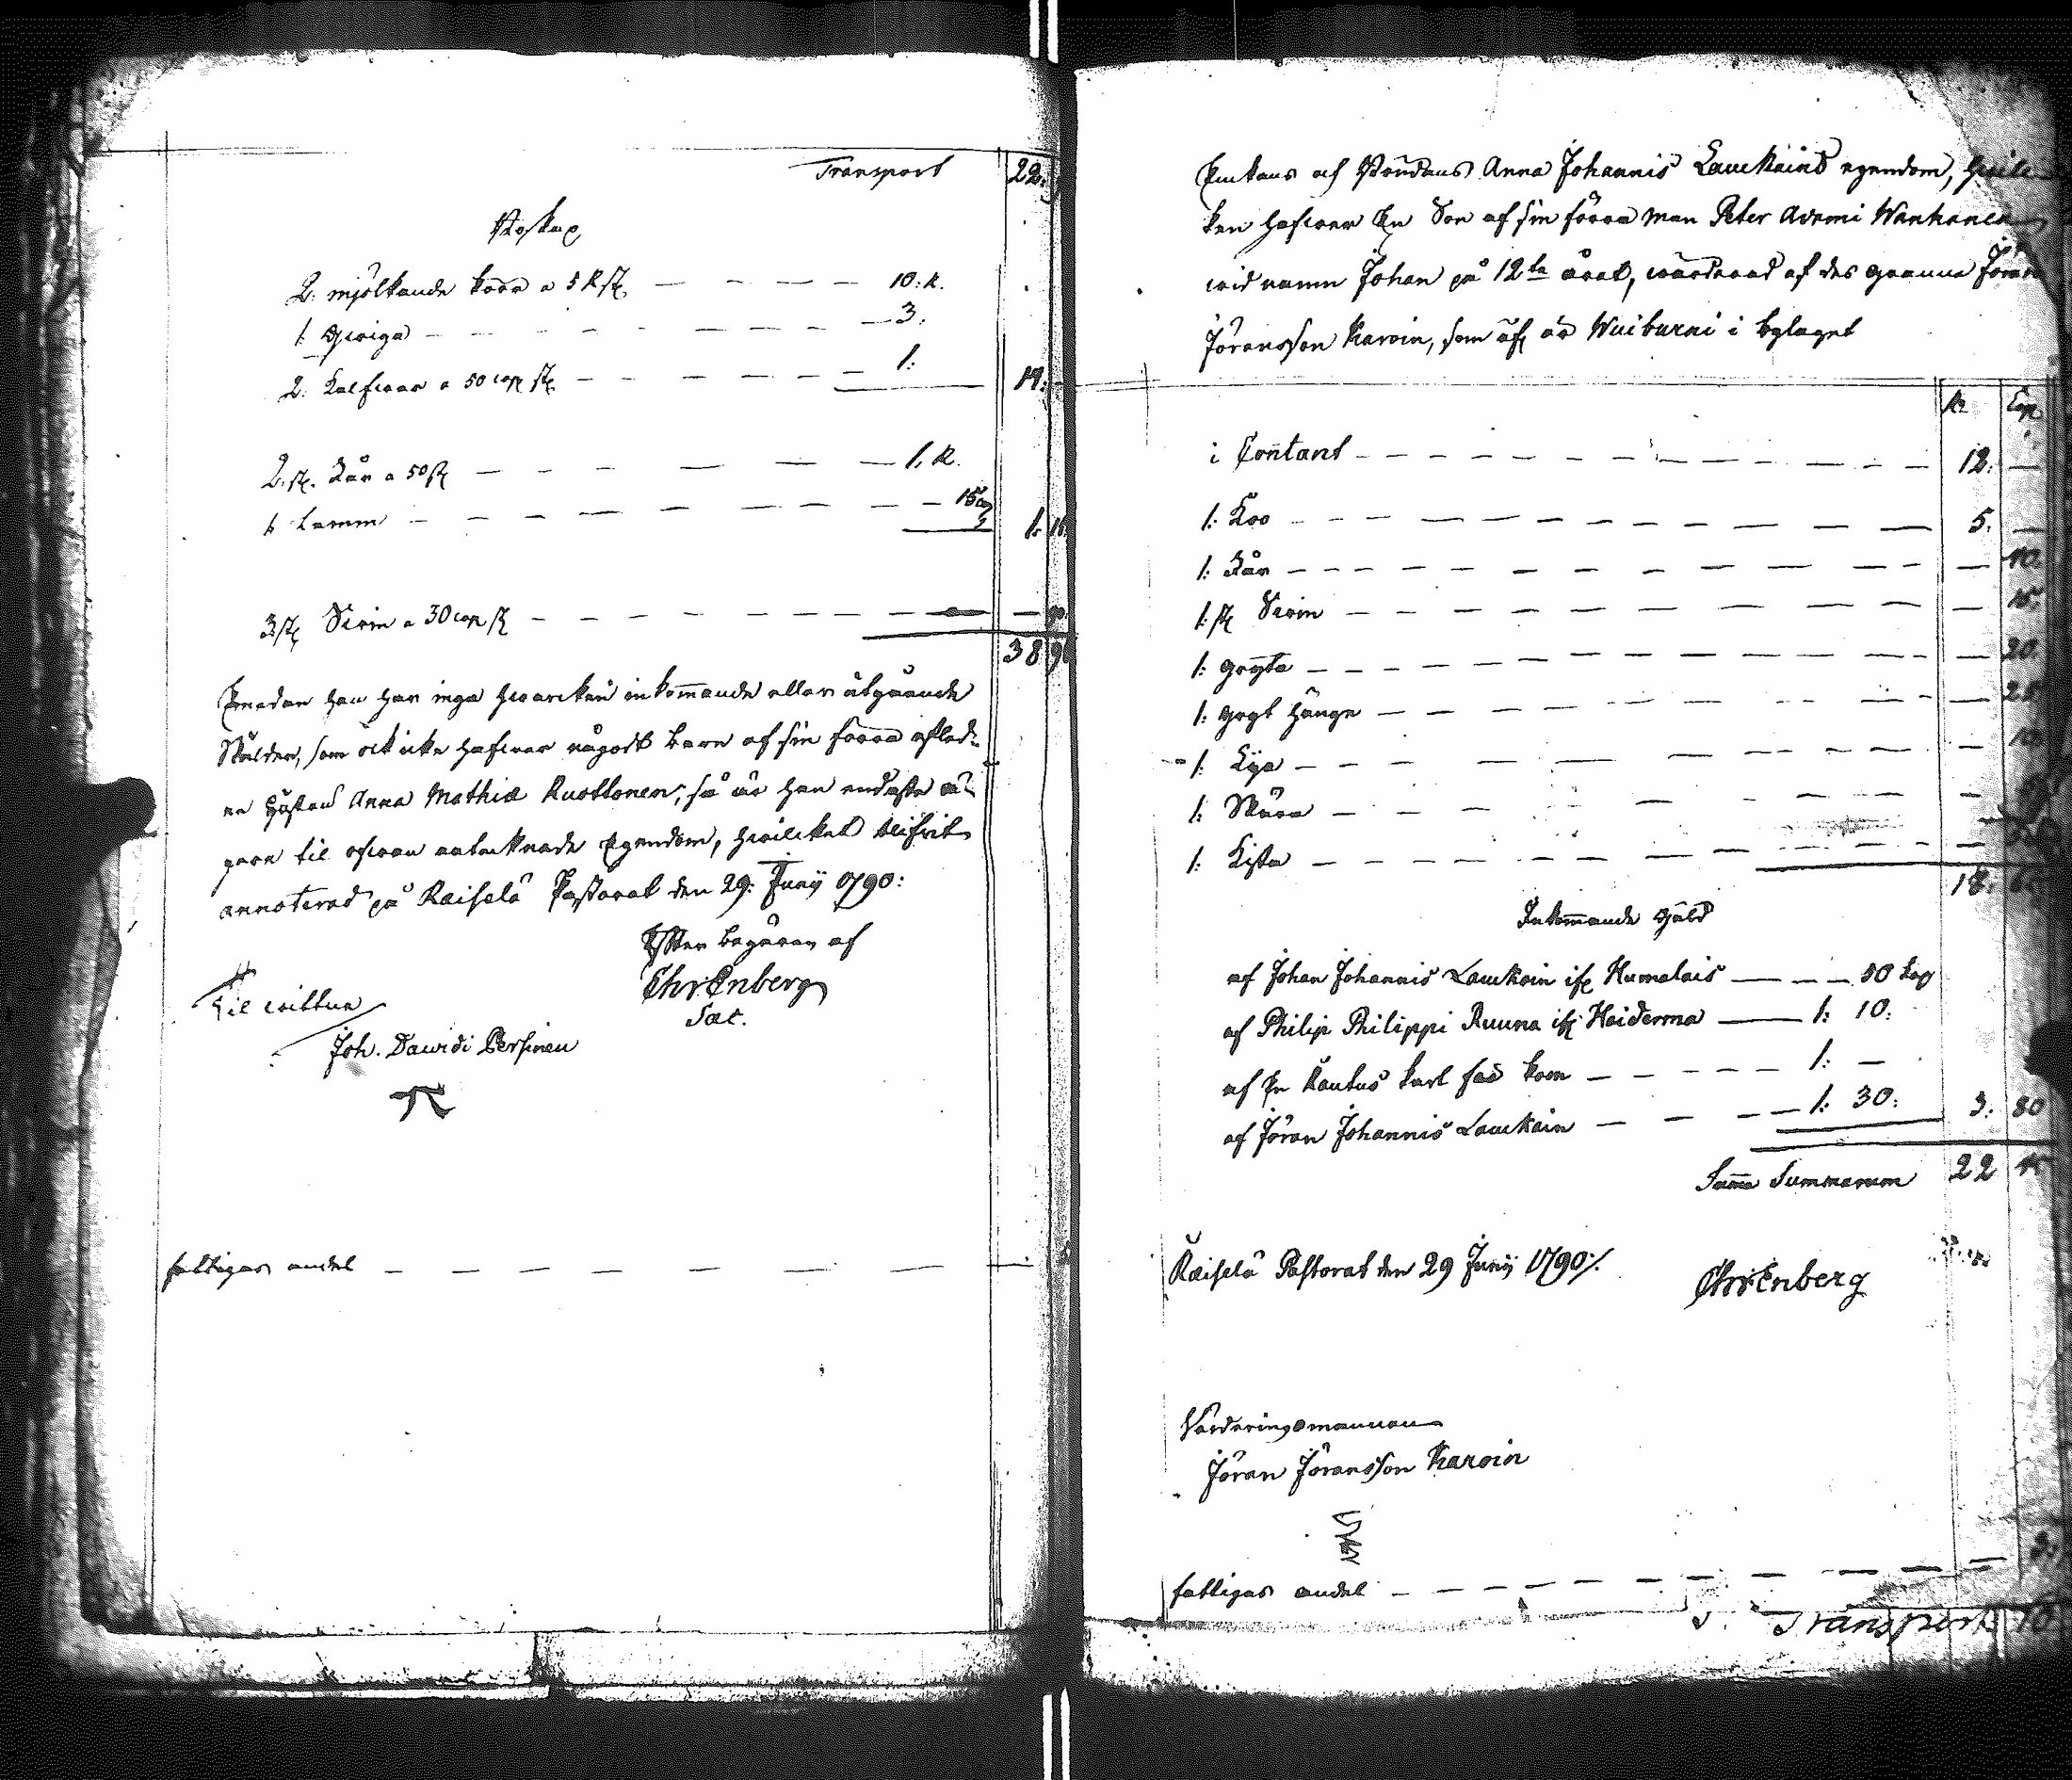 Transport 22.
Boskap
2. mjölkande koor a 5 R st. — — — — 10: R.
1. Qwiga — — — — — — 3:
2. Kalfwar a 50 cop st. — — — — 1: 14: —
2. st. Får a 50 st — — — — 1. R.
1. Lamm — — — — — — 15 cop 1. 15.
3 st Swin a 30 cop st — — — — — — 90.
38 90
Emedan han har inga hwarcken inkommande eller utgående
Skulder, som ock icke hafwer någodt barn af sin förra afled:
ne Hustru Anna Mathiæ Ruottonen, så är han endaste ä-
gare til ofwan antecknade Egendom, hwilcket blifwit
annoterad på Räisälä Pastorat den 29: Junÿ 1790:
Efter begäran af
Chr: Enberg
Sac.
Til wittne
Joh. Dawidi Persinen
fattigas andel — — — — — — — —
Enkans och Brudens Anna Johannis Lauckains egendom, hwil-
ken hafwer En Son af sin förra man Peter Adami Wanhanen
wid namn Johan på 12te året, wärderad af des granne Jöran
Jöransson Karoin, som ... är Wuiburni i bylaget
R: Cop
i Contant — — — — — — 12: —
1: Koo — — — — — — 5. —
1: Får — — — — — — — 40
1: st Swin — — — — — — — 15.
1: gryta — — — — — — — 20
1: gryt hänge — — — — — — — 25
1: Lya — — — — — — — 10
1: Skära — — — — — —
1: Kista — — — — — —
18: 65
Inkommande gäld
af Johan Johannis Lauckain ifr Humalais — — — 50 kop
af Philip Philippi Ruuna ifr Heiderma — 1: 10:
af En Kautus karl för koon — — — — 1: —
af Jöran Johannis Lauckain — — — 1: 30: 3: 80
Suma Summarum 22 45
Räisälä Pastorat den 29 Junÿ 1790./.
Chr: Enberg
Värderingsmannen
Jöran Jöransson Karoin
fattigas andel — — — — — — — —
Transport 10